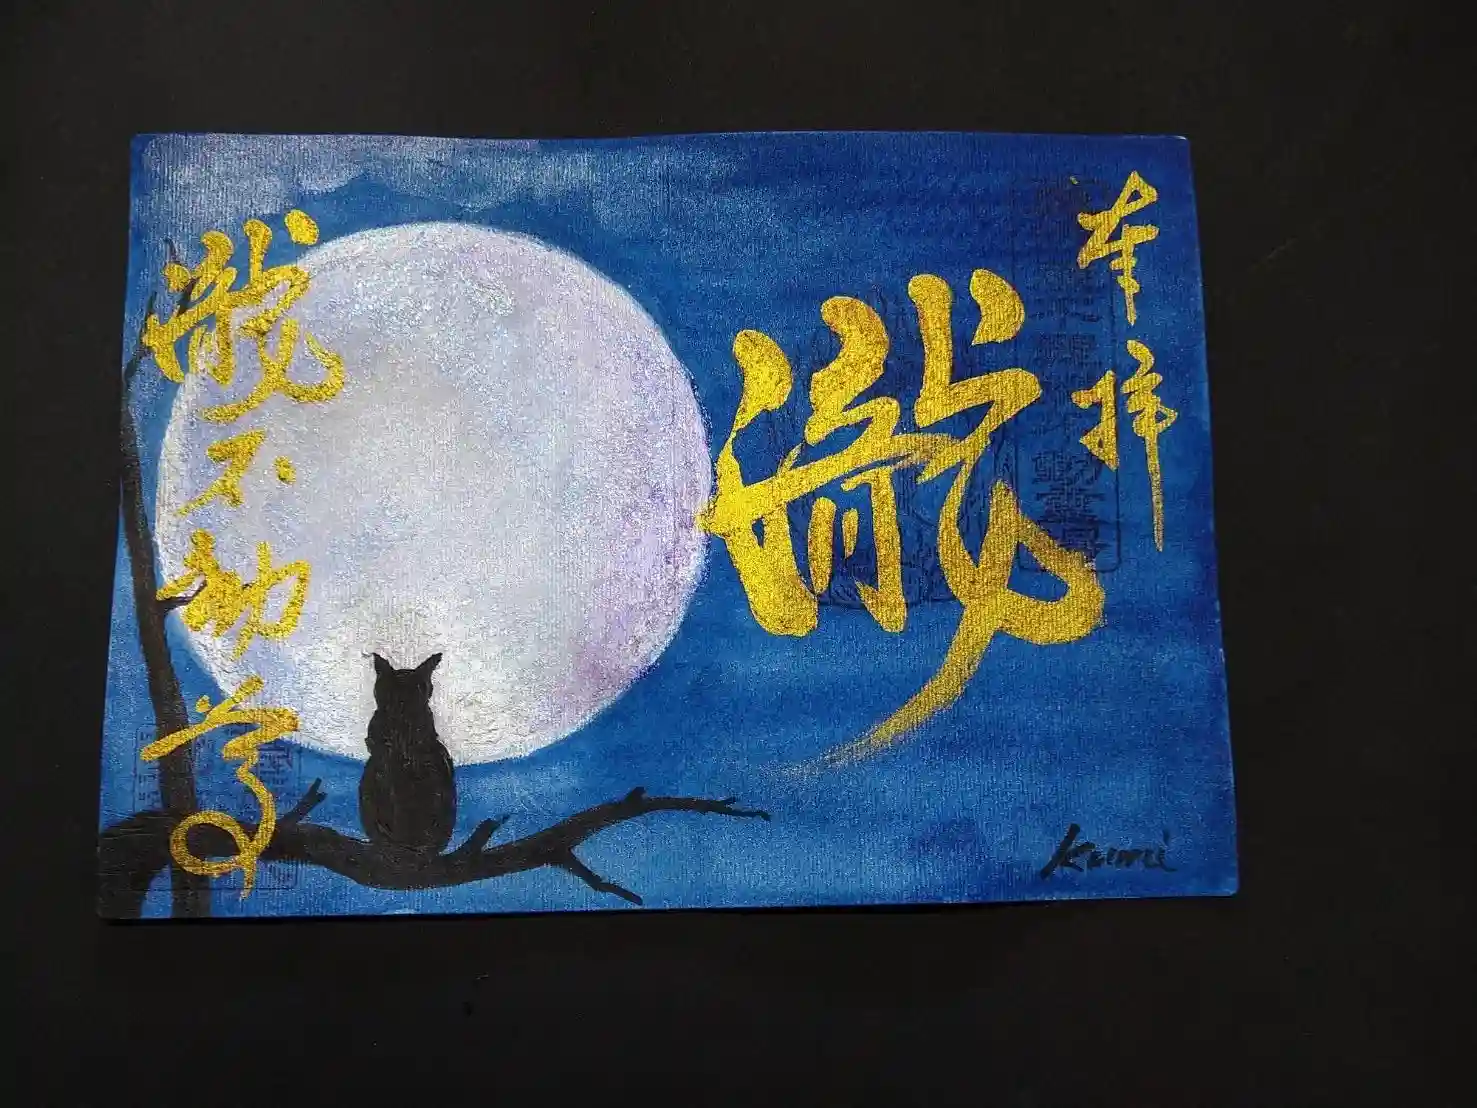 奉拝
瀧
瀧不動尊
Kumi